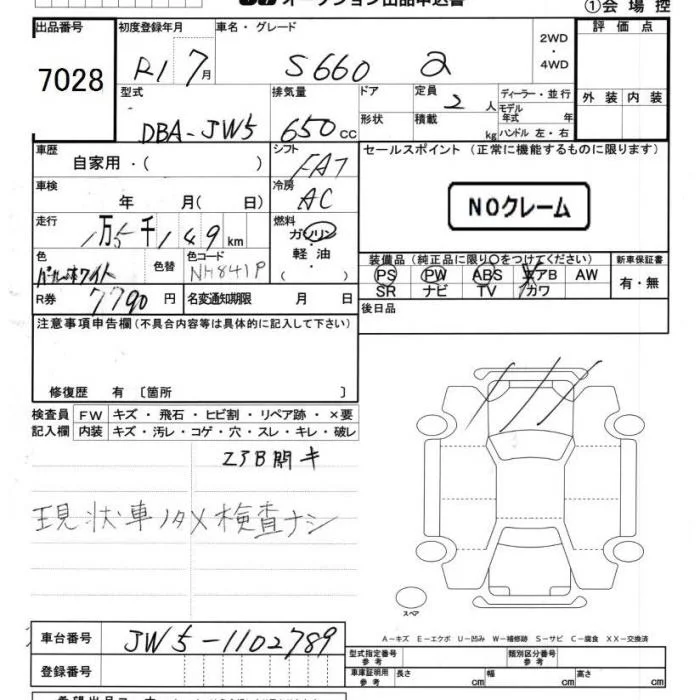 オークション出品申込書
①会場控
出品番号
7028
初度登録年月
R1 7月
車名・グレード
S660 α
2WD・4WD
評価点
外装 内装
型式
DBA-JW5
排気量
650cc
ドア
形状
定員
2人
積載
kg
ディーラー・並行
モデル年式 年
ハンドル 左・右
車歴
自家用・( )
シフト
FA7
セールスポイント(正常に機能するものに限ります)
NOクレーム
車検
年 月( 日)
冷房
AC
走行
1万5千149km
燃料
ガソリン
軽油
( )
色
パールホワイト
色替
色コード
NH841P
装備品(純正品に限り○をつけてください)
PS PW ABS エアB AW
SR ナビ TV カワ
新車保証書
有・無
R券
7790円
名変通知期限 月 日
後日品
注意事項申告欄(不具合内容等は具体的に記入して下さい)
修復歴 有 〔箇所 〕
検査員記入欄
FW キズ・飛石・ヒビ割・リペア跡・×要
内装 キズ・汚レ・コゲ・穴・スレ・キレ・破レ
エアB開キ
現状車ノタメ検査ナシ
スペア
A−キズ E−エクボ U−凹み W−補修跡 S−サビ C−腐食 XX−交換済
車台番号
JW5-1102789
登録番号
型式指定番号 参考
類別区分番号 参考
車庫証明用 参考
長さ cm 幅 cm 高さ cm